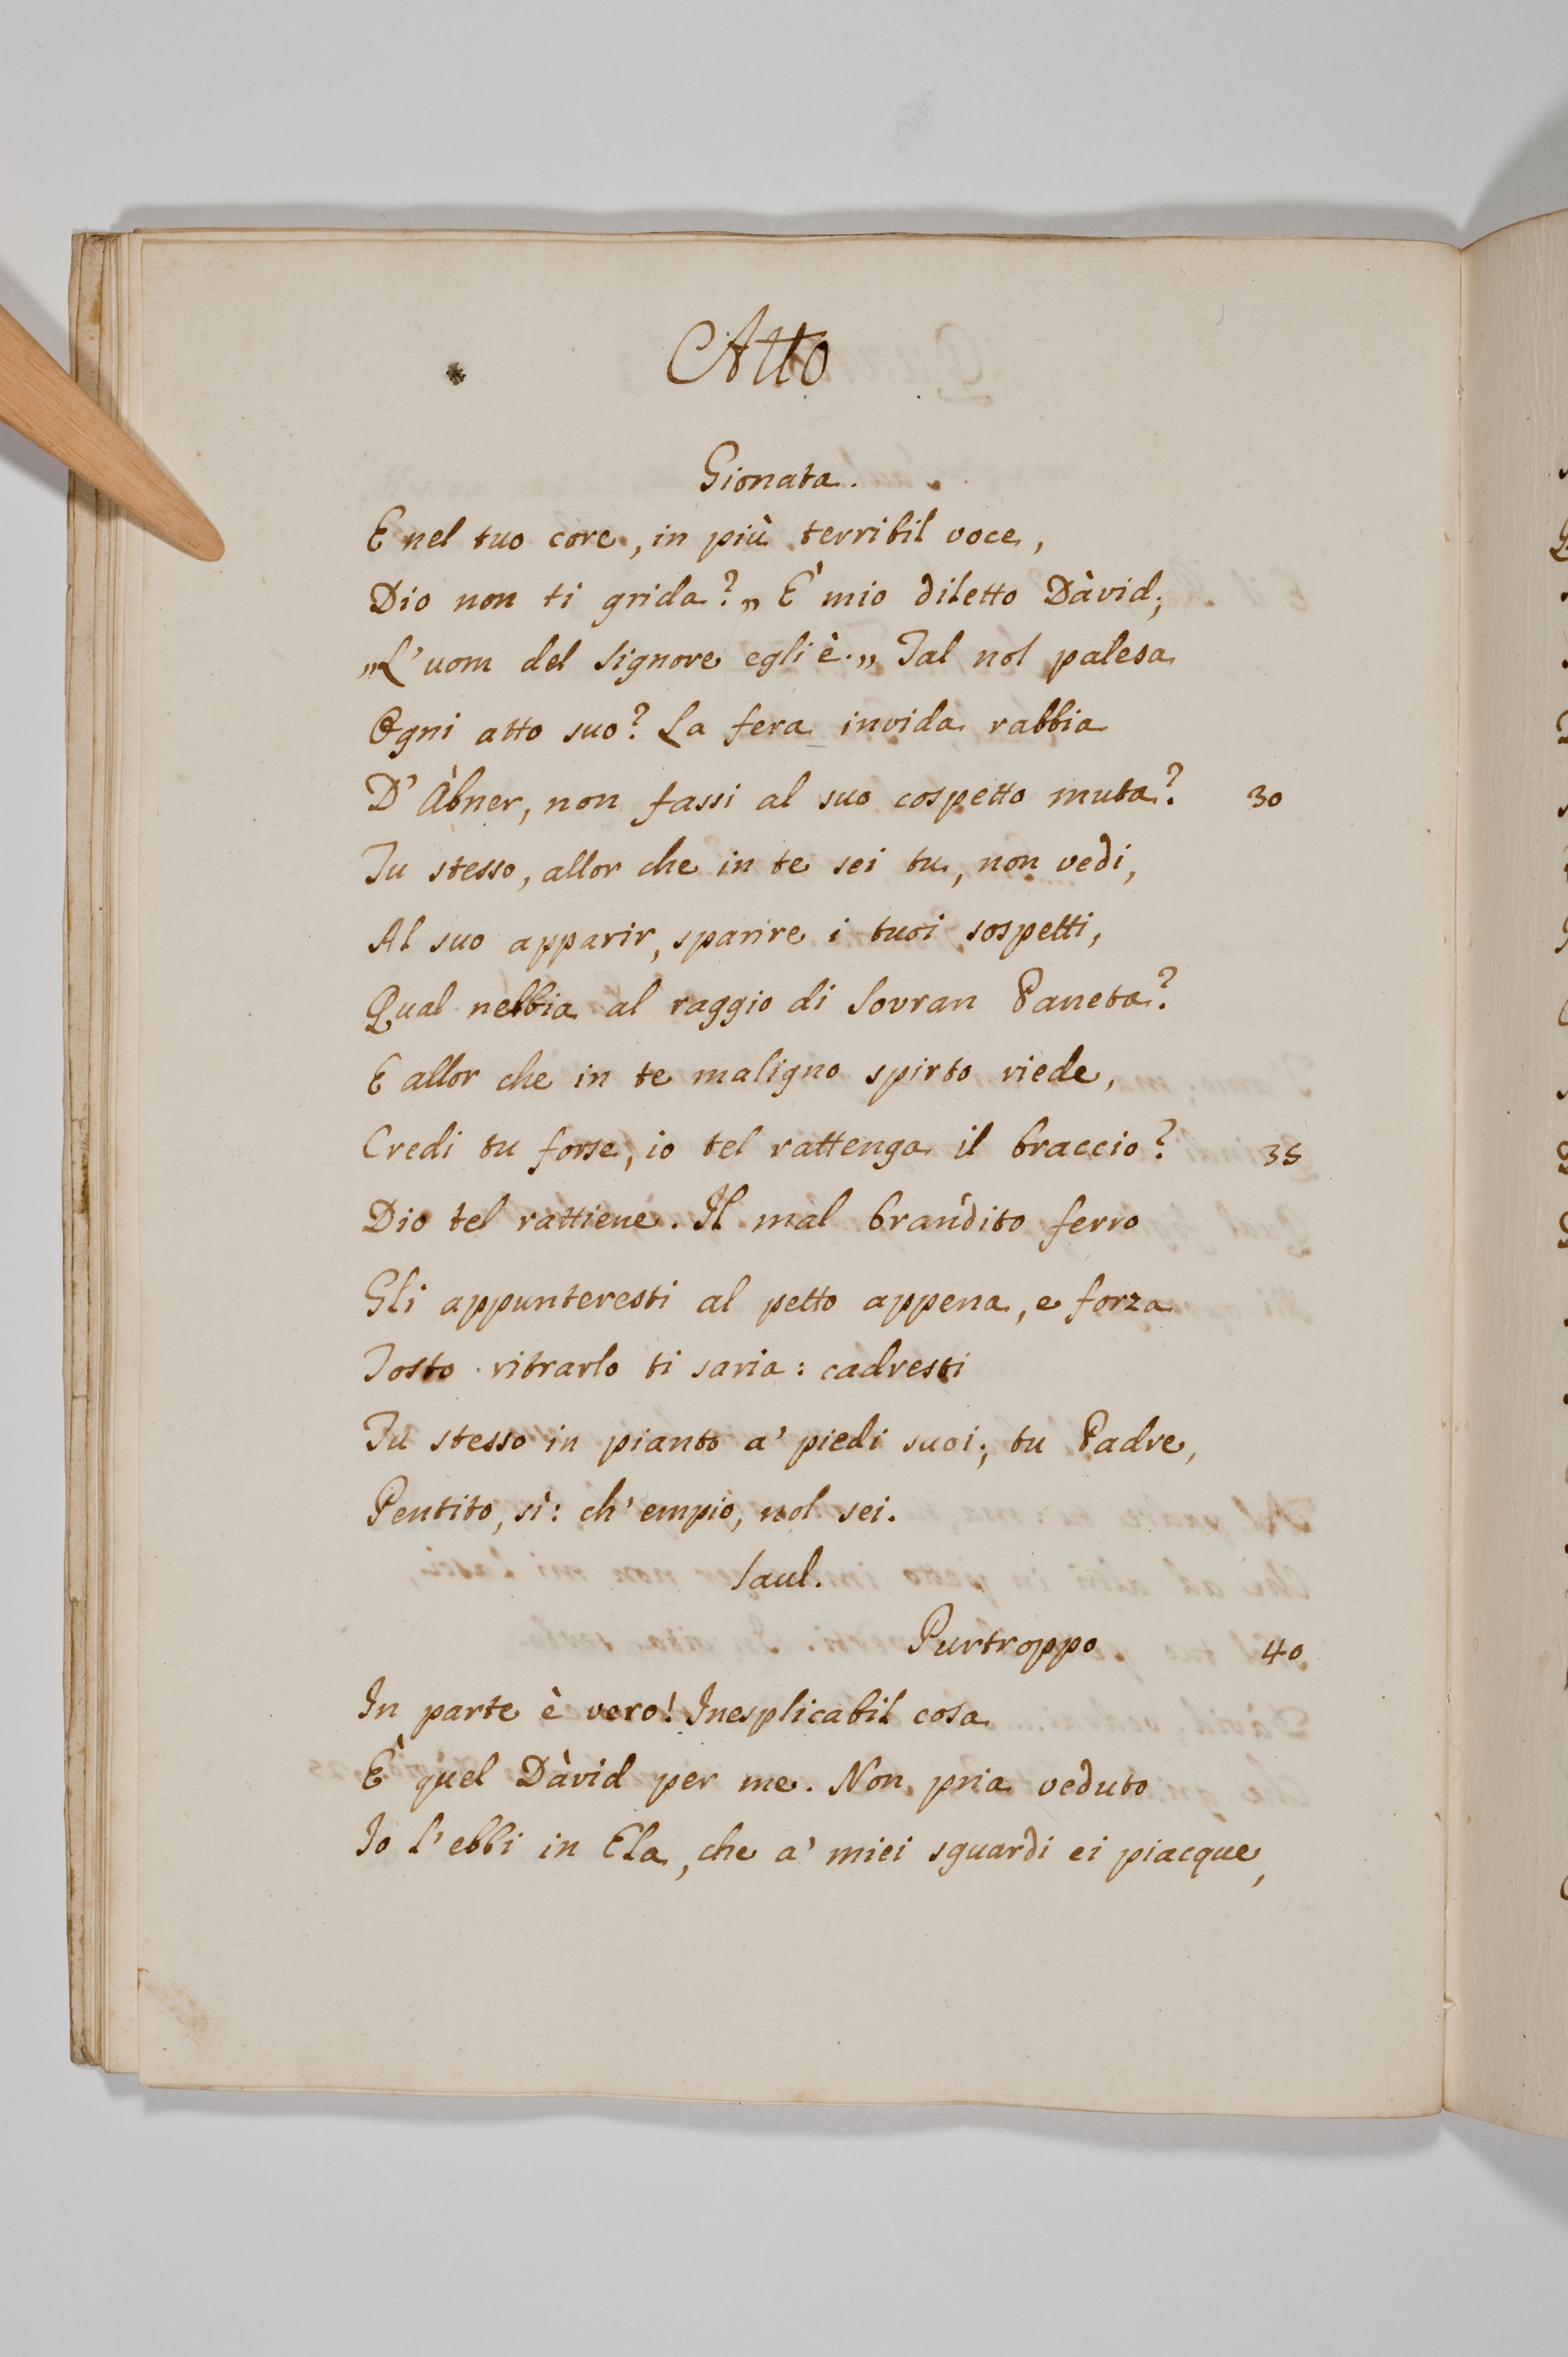 Atto
Gionata.
E nel tuo core, in più terribil voce,
Dio non ti grida? „ E' mio diletto Dàvid;
„L'uom del Signore egli è.„ Tal nol palesa
Ogni atto suo? La fera invida rabbia
D'Àbner, non fassi al suo cospetto muta? 30
Tu stesso, allor che in te sei tu, non vedi,
Al suo apparir, sparire i tuoi sospetti,
Qual nebbia al raggio di Sovran Paneta?
E allor che in te maligno spirto riede,
Credi tu forse, io tel rattenga il braccio? 35
Dio tel rattiene. Il mal brandito ferro
Gli appunteresti al petto appena, e forza
Tosto ritrarlo ti saria: cadresti
Tu stesso in pianto a' piedi suoi; tu Padre,
Pentito, sì: ch'empio, nol sei.
Saul.
Purtroppo 40
In parte è vero! Inesplicabil cosa
E' quel Dàvid per me. Non pria veduto
Io l'ebbi in Ela, che a' miei sguardi ei piacque,